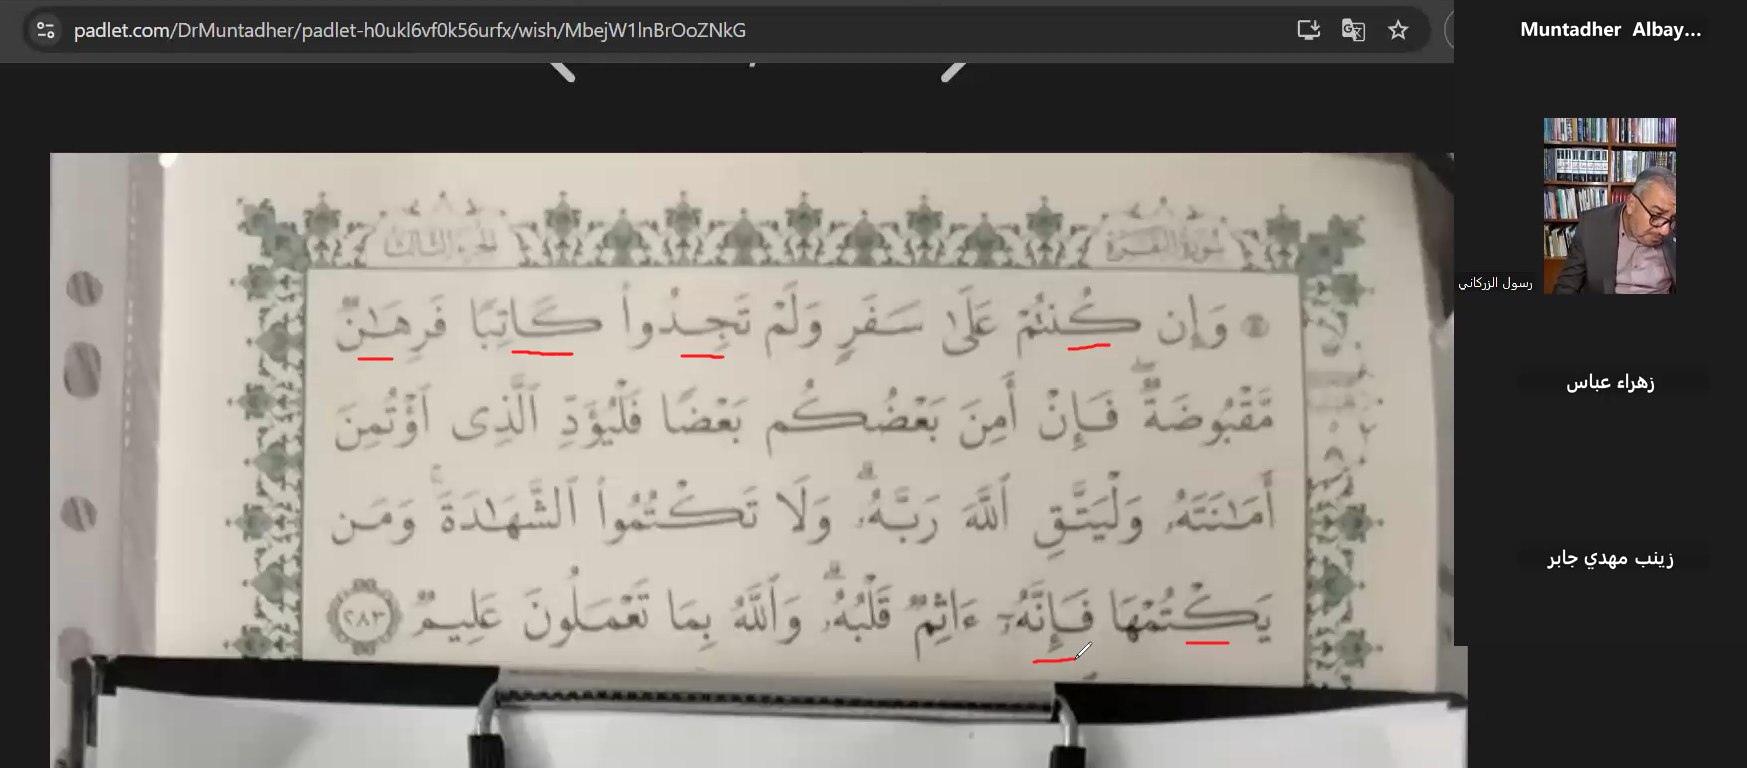 padlet.com/DrMuntadher/padlet-h0ukl6vf0k56urfx/wish/MbejW1lnBrOoZNkG
Muntadher Albay...
رسول الزركاني
زهراء عباس
زينب مهدي جابر
سورة البقرة
الجزء الثالث
۞ وَإِن كُنتُمْ عَلَىٰ سَفَرٍ وَلَمْ تَجِدُوا۟ كَاتِبًا فَرِهَـٰنٌ
مَّقْبُوضَةٌ ۖ فَإِنْ أَمِنَ بَعْضُكُم بَعْضًا فَلْيُؤَدِّ ٱلَّذِى ٱؤْتُمِنَ
أَمَـٰنَتَهُۥ وَلْيَتَّقِ ٱللَّهَ رَبَّهُۥ ۗ وَلَا تَكْتُمُوا۟ ٱلشَّهَـٰدَةَ ۚ وَمَن
يَكْتُمْهَا فَإِنَّهُۥٓ ءَاثِمٌ قَلْبُهُۥ ۗ وَٱللَّهُ بِمَا تَعْمَلُونَ عَلِيمٌ ٢٨٣